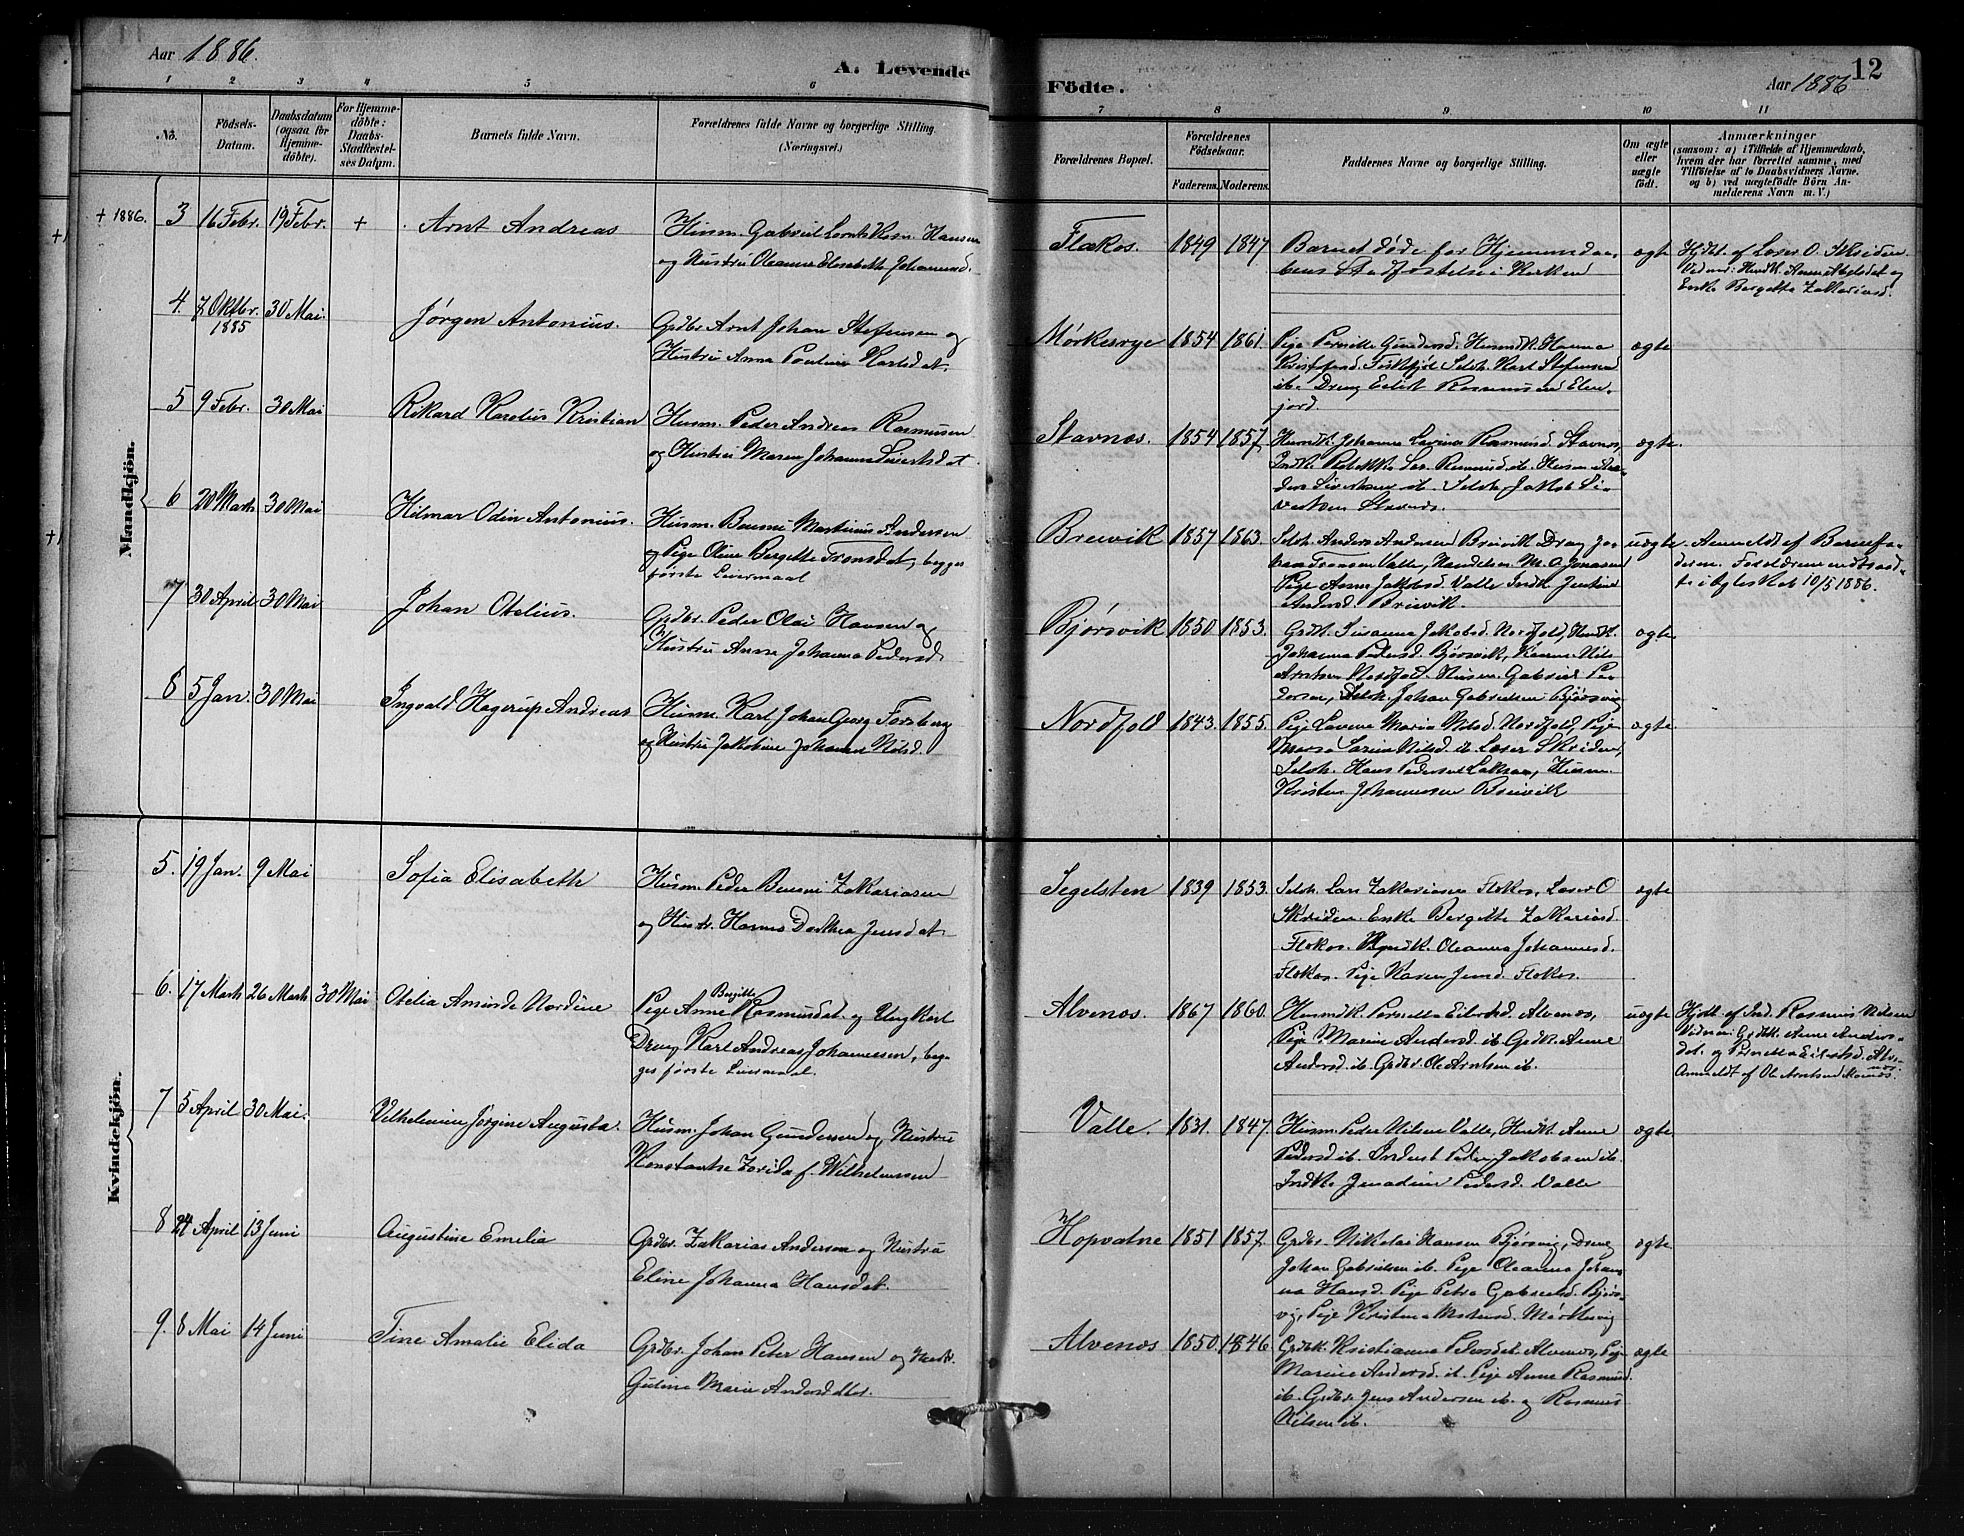 Aar 1886.
A. Levende
Födte.
Aar 1886
12
1 2 3 4 5 6 7 8 9 10 11
No.
Födsels-
Datum.
Daabsdatum
(ogsaa for
Hjemme-
döbte).
For Hjemme-
döbte:
Daabs-
Stadfæstel-
ses Datum.
Barnets fulde Navn.
Forældrenes fulde Navne og borgerlige Stilling.
(Næringsvei.)
Forældrenes Bopæl.
Forældrenes
Födselsaar.
Faderens. Moderens.
Faddernes Navne og borgerlige Stilling.
Om ægte
eller
uægte
födt.
Anmærkninger
(saasom: a) i Tilfælde af Hjemmedaab,
hvem der har forrettet samme, med
Tilföielse af to Daabsvidners Navne.
og b) ved uægtefödte Börn An-
melderens Navn m. V.)
Mandkjön.
+ 1886. 3 16 Febr. 19 Febr. + Arnt Andreas
Husm. Gabriel Hansen
og Hustru Oleanna Elisabeth Johannesd.
Flækos. 1849 1847
Barnet døde før Hjemmedaa-
bens Stadfæstelse i Kirken
ægte
Hjdbt. af Læser O. Skriden.
Enke Bergitta Zakariasd.
4. 7 Oktbr. 1885 30 Mai. Jørgen Antonius.
Grdbr. Arnt Johan Stefensen og
Hustru Anna Pauline Karlsdat.
Mørkesvye 1854 1861.
Pige Pernille Gundersd. Husmdk. Hanna
Selvh. Karl Stefensen
ib. Dreng Eilert Rasmussen Elen-
jord.
ægte
5 9 Febr. 30 Mai Rikard Karelius Kristian
Husm. Peder Andreas Rasmussen
og Hustru Maren Johanna Sivertsdat.
Stavnæs. 1854 1857
Husmdk. Johanna Lavina Rasmusd. Stavnæs,
ders Sivertsen ib. Selvh. Jakob Si-
vertsen Stavnæs.
ægte.
6 20 Marts 30 Mai Hilmar Odin Antonius.
Husm. Benoni Martinus Andersen
og Pige Oline Bergitte Tronsdat, begges
første Leiermaal
Breivik 1857 1863.
Selvh. Anders Andersen Breivik Dreng Jo-
han Tronsen Valle, Handelsm. M. O. Jonassen
Pige Anna Jakobsd. Valle Indk. Jentine
Andersd. Breivik.
uægte
Anmeldt af Barnefa-
deren. Forældrene indtraad-
te i Ægteskab 10/5 1886.
7 30 April 30 Mai Johan Otelius.
Grdbr. Peder Olai Hansen og
Hustru Anne Johanna Pedersd.
Bjørsvik 1850 1853.
Grdk. Susanna Jakobsd. Nordfold, Husmdk.
Johanna Pedersd. Bjørsvik, Nils
Arntsen Nordfold. Husm. Gabriel Pe-
dersen, Selvh. Johan Gabrielsen Bjørsvig
ægte
8 5 Jan. 30 Mai Ingvald Hagerup Andreas
Husm. Karl Johan Georg Forsberg
og Hustru Jakobine Johanna Nilsd.
Nordfold 1843. 1855.
Pige Lavina Maria Nilsd. Nordfold, Pige
Marsa Sarina Nilsd. ib. Læser Skriden,
Selvh. Hans Pedersen Laksaa, Husm.
Kristen Johannessen Breivik
ægte
Kvindekjön.
5. 19 Jan. 9 Mai Sofia Elisabeth
Husm. Peder Benoni Zakariasen
og Hustr. Hanna Dorthea Jensdat.
Segelsten 1839 1853.
Selvh. Lars Zakariasen Flekos, Læser O
Skriden. Enke Bergitte Zakariasd.
Flekos. Oleanna Johannesd.
Flekos. Pige Karen Jensd. Flekos.
ægte
6. 17 Marts 26 Marts 30 Mai Otelia Aminde Nordine
Pige Anne Bergitte Rasmusdat. og Ungkarl
Dreng Karl Andreas Johannessen, beg-
ges første Leiermaal.
Alvenæs. 1867 1860.
Husmdk. Pernella Eilertsd. Alvenæs,
Pige Marine Andersd. ib. Grdk. Anne
Andersd. ib. Grdbr. Ole Arntsen ib.
uægte
Hjdbt. af Ind. Rasmus Nilsen
Vidner: Grdk. Anne Anders-
dat. og Pernella Eilertsd. Alve-
næs.
Anmeldt af Ole Arntsen Alvenæs.
7 5 April 30 Mai. Vilhelmine Jørgine Augusta.
Husm. Johan Gundersen og Hustru
Konstantse Zerida f. Wilhelmssen
Valle. 1831. 1847.
Husm. Peder Nilsen Valle, Husmdk. Anne
Pedersd. ib. Inderst Peder Jakobsen ib.
Indk. Jenadine Pedersd. Valle
ægte
8 24 April 13 Juni Augustine Emelia
Grdbr. Zakarias Andersen og Hustru
Eline Johanna Hansdat.
Hopvatne 1851 1857.
Grdbr. Nikolai Hansen Bjørsvig, Dreng
Johan Gabrielsen ib. Pige Oleanna Johan-
na Hansd. Pige Petra Gabrielsd. Bjørs-
vig, Pige Kristina
ægte
9. 8 Mai 14 Juni Tine Amalie Elida
Grdbr. Johan Peter Hansen og Hustr.
Guline Marie Andersdtter.
Alvenæs 1850. 1846.
Grdbk. Kristianna Pedersdat. Alvenæs, Pige
Marine Andersd. ib. Pige Anne Rasmusd.
ib. Grdbr. Jens Andersen ib. og Rasmus
Nilsen ib.
ægte